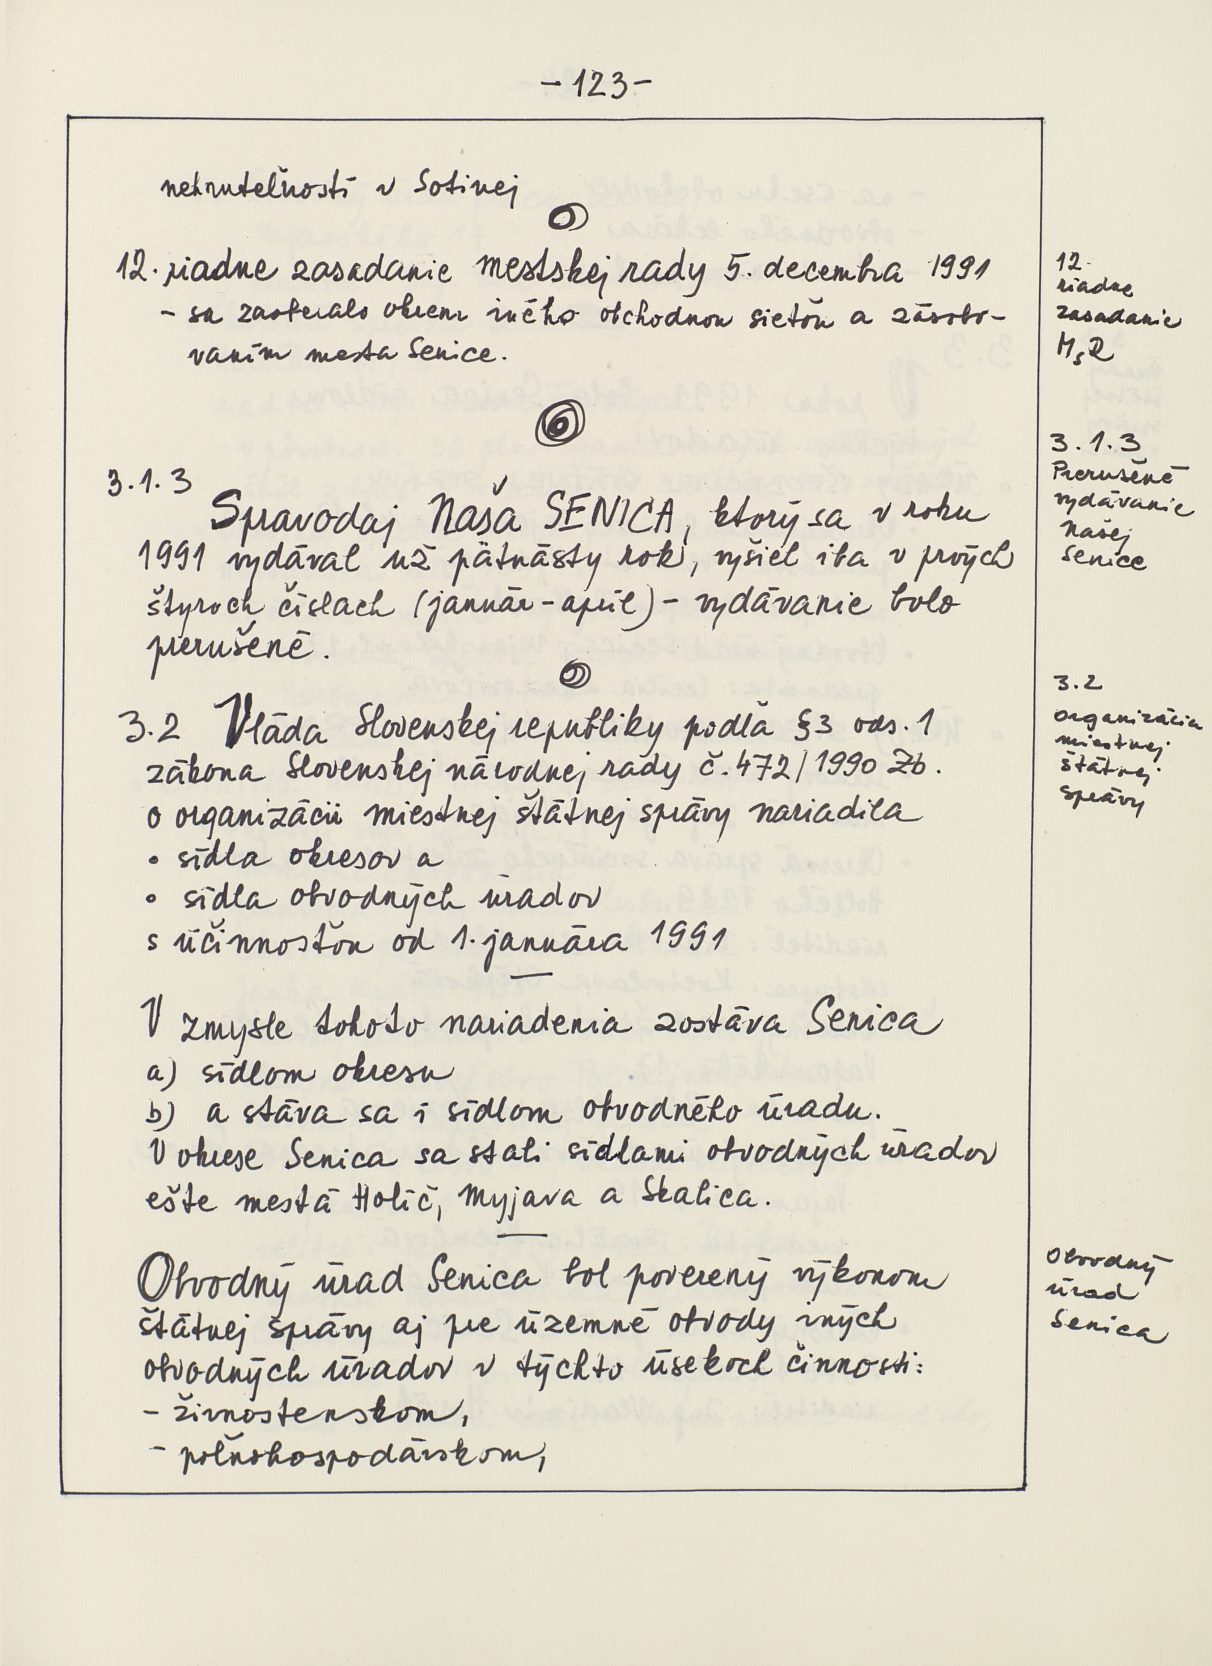 - 123 -
nehnuteľnosti v Sotinej
12. riadne zasadanie mestskej rady 5. decembra 1991
- sa zaoberalo okrem iného obchodnou sieťou a zásobo-
vaním mesta Senice.
12.
riadne
zasadanie
MsR
3.1.3
Spravodaj Naša SENICA, ktorý sa v roku
1991 vydával už pätnásty rok, vyšiel iba v prvých
štyroch číslach (január - apríl) - vydávanie bolo
prerušené.
3.1.3
Prerušené
vydávanie
Našej
Senice
3.2 Vláda Slovenskej republiky podľa §3 ods. 1
zákona Slovenskej národnej rady č. 472/1990 Zb.
o organizácii miestnej štátnej správy nariadila
• sídla okresov a
• sídla obvodných úradov
s účinnosťou od 1. januára 1991
3.2
organizácia
miestnej
štátnej
správy
V zmysle tohoto nariadenia zostáva Senica
a) sídlom okresu
b) a stáva sa i sídlom obvodného úradu.
V okrese Senica sa stali sídlami obvodných úradov
ešte mestá Holíč, Myjava a Skalica.
Obvodný úrad Senica bol poverený výkonom
štátnej správy aj pre územné obvody iných
obvodných úradov v týchto úsekoch činnosti:
- živnostenskom,
- poľnohospodárskom,
Obvodný
úrad
Senica